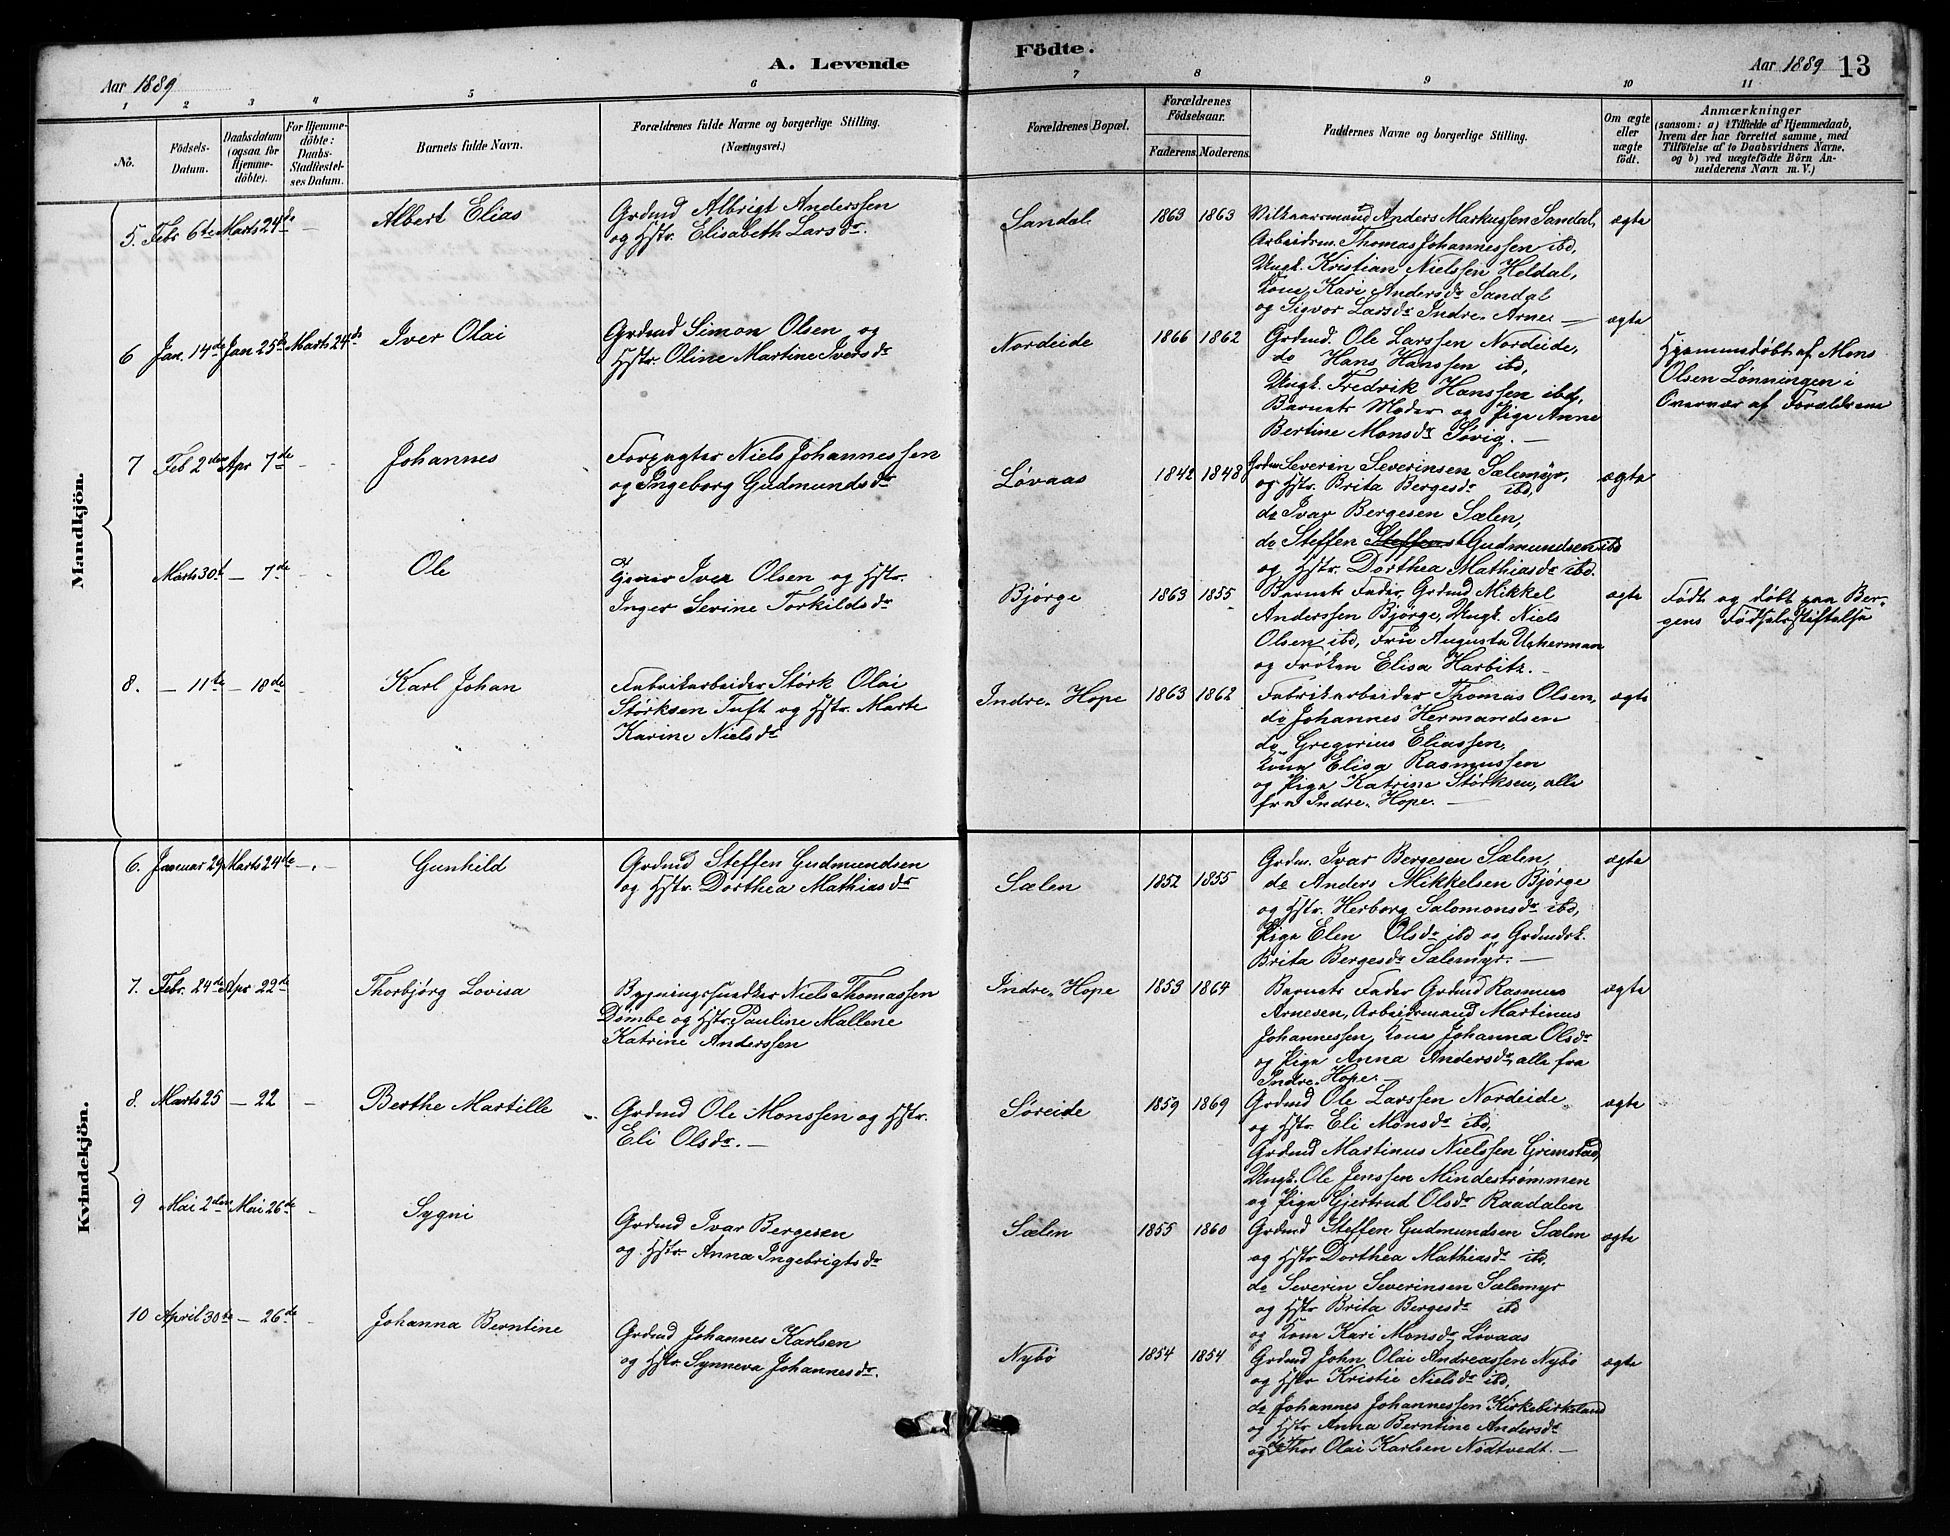 Aar 1889
A. Levende
Födte.
Aar 1889
13
1 2 3 4 5 6 7 8 9 10 11
No.
Födsels-
Datum.
Daabsdatum
(ogsaa for
Hjemme-
döbte).
For Hjemme-
döbte:
Daabs-
Stadfæstel-
ses Datum.
Barnets fulde Navn.
Forældrenes fulde Navne og borgerlige Stilling.
(Næringsvei.)
Forældrenes Bopæl.
Forældrenes
Födselsaar.
Faderens. Moderens.
Faddernes Navne og borgerlige Stilling.
Om ægte
eller
uægte
födt.
Anmærkninger
(saasom: a) i Tilfælde af Hjemmedaab,
hvem der har forrettet samme, med
Tilföielse af to Daabsvidners Navne.
og b) ved uægtefödte Börn An-
melderens Navn m. V.)
Mandkjön.
5. Febr 6te Marts 24de -
Albert Elias
Grdmd Albrigt Anderssen
og Hstr. Elisabeth Larsdr.
Sandal
1863 1863
Vilkaarsmand Anders Markussen Sandal,
Arbeidsm. Thomas Johannessen ibd,
Ungk. Kristian Nielssen Heldal,
Kone Kari Andersdr Sandal
og Sigvor Larsdr Indre Arne —
ægte
6 Jan. 14de Jan 25de Marts 24de
Iver Olai
Grdmd Simon Olsen og
Hstr. Oline Martine Iversdr
Nordeide
1866 1862
Grdmd. Ole Larssen Nordeide,
do Hans Hanssen ibd,
Ungk. Fredrik Hanssen ibd,
Barnets Moder og Pige Anne
Bertine Monsdr Søvig. —
ægte
Hjemmedøbt af Mons
Olsen Lønningen i
Overvær af Forældrene
7 Feb 2den Apr 7de -
Johannes
Forpagter Niels Johannessen
og Ingeborg Gudmundsdr
Løvaas
1842 1848
Grdm. Severin Severinsen Sælemyr,
og Hstr. Brita Bergesdr ibd,
do Ivar Bergesen Sælen,
do Steffen Gudmundsen ibd
og Hstr. Dorthea Mathiasdr ibd.
ægte
Marts 30t — 7de -
Ole
Iver Olsen og Hstr.
Inger Serine Torkildsdr
Bjørge
1863 1855
Barnets Fader, Grdmd Mikkel
Anderssen Bjørge, Ungk. Niels
Olsen ibd, Fru Augusta Ucherman
og Frøken Elisa Harbitz. —
ægte
Født og døbt paa Ber-
gens Fødselsstiftelse
8. — 11te — 18de -
Karl Johan
Fabrikarbeider Størk Olai
Størksen Tuft og Hstr. Marte
Karine Nielsdr
Indre Hope
1863 1862
Fabrikarbeider Thomas Olsen,
do Johannes Hermandsen
do Gregorius Eliassen,
Kone Elisa Rasmussen
og Pige Katrine Størksen, alle
fra Indre Hope. —
ægte
Kvindekjön.
6. Januar 29 Marts 24de -
Gunhild
Grdmd Steffen Gudmundsen
og Hstr. Dorthea Mathiasdr
Sælen
1852 1855
Grdm. Ivar Bergesen Sælen,
do Anders Mikkelsen Bjørge
og Hstr. Herborg Salomonsdr ibd,
Pige Elen Olsdr ibd og Grdmdsk.
Brita Bergesdr Sælemyr. —
ægte
7. Febr. 24de Apr 22de
Thorbjørg Lovisa
Bygningssnedker Niels Thomassen
Dombe og Hstr. Pauline Mallene
Katrine Anderssen
Indre Hope
1853 1864
Barnets Fader Grdmd Rasmus
Arnesen, Arbeidsmand Martinus
Johannessen, Kone Johanna Olsdr
og Pige Anna Andersdr, alle fra
Indre Hope. —
ægte
8. Marts 25 — 22 -
Berthe Martille
Grdmd Ole Monssen og Hstr.
Eli Olsdr. —
Søreide
1859 1869
Grdmd Ole Larssen Nordeide
og Hstr. Eli Monsdr ibd,
Grdmd Martinus Nielssen Grimstad,
Ungk. Ole Jenssen Mindestrømmen
og Pige Gjertrud Olsdr Raadalen
ægte
9 Mai 2den Mai 26de -
Sygni
Grdmd Ivar Bergesen
og Hstr. Anna Ingebrigtsdr
Sælen
1855 1860
Grdmd Steffen Gudmundsen Sælen
og Hstr Dorthea Mathiasdr ibd,
do Severin Severinsen Sælemyr
og Hstr Brita Bergesdr ibd
og Kone Kari Monsdr Løvaas
ægte
10 April 30te — 26de -
Johanna Berntine
Grdmd Johannes Karlsen
og Hstr. Synneva Johannesdr.
Nybø
1854 1854
Grdmd John Olai Andreassen Nybø
og Hstr Kristie Nielsdr ibd,
do Johannes Johannessen Kirkebirkeland
og Hstr Anna Berntine Andersdr
og Thor Olai Karlsen Nødtvedt. —
ægte